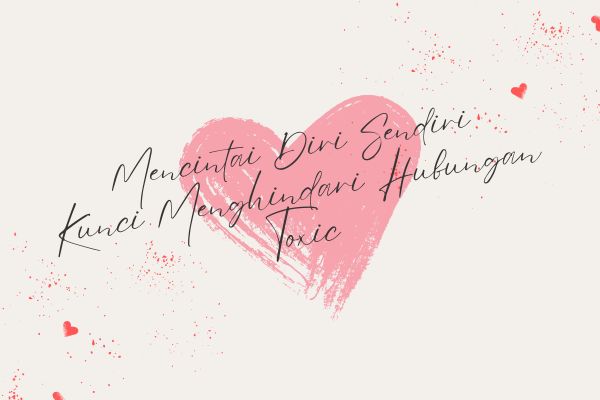 Mencintai Diri Sendiri
Kunci Menghindari Hubungan
Toxic